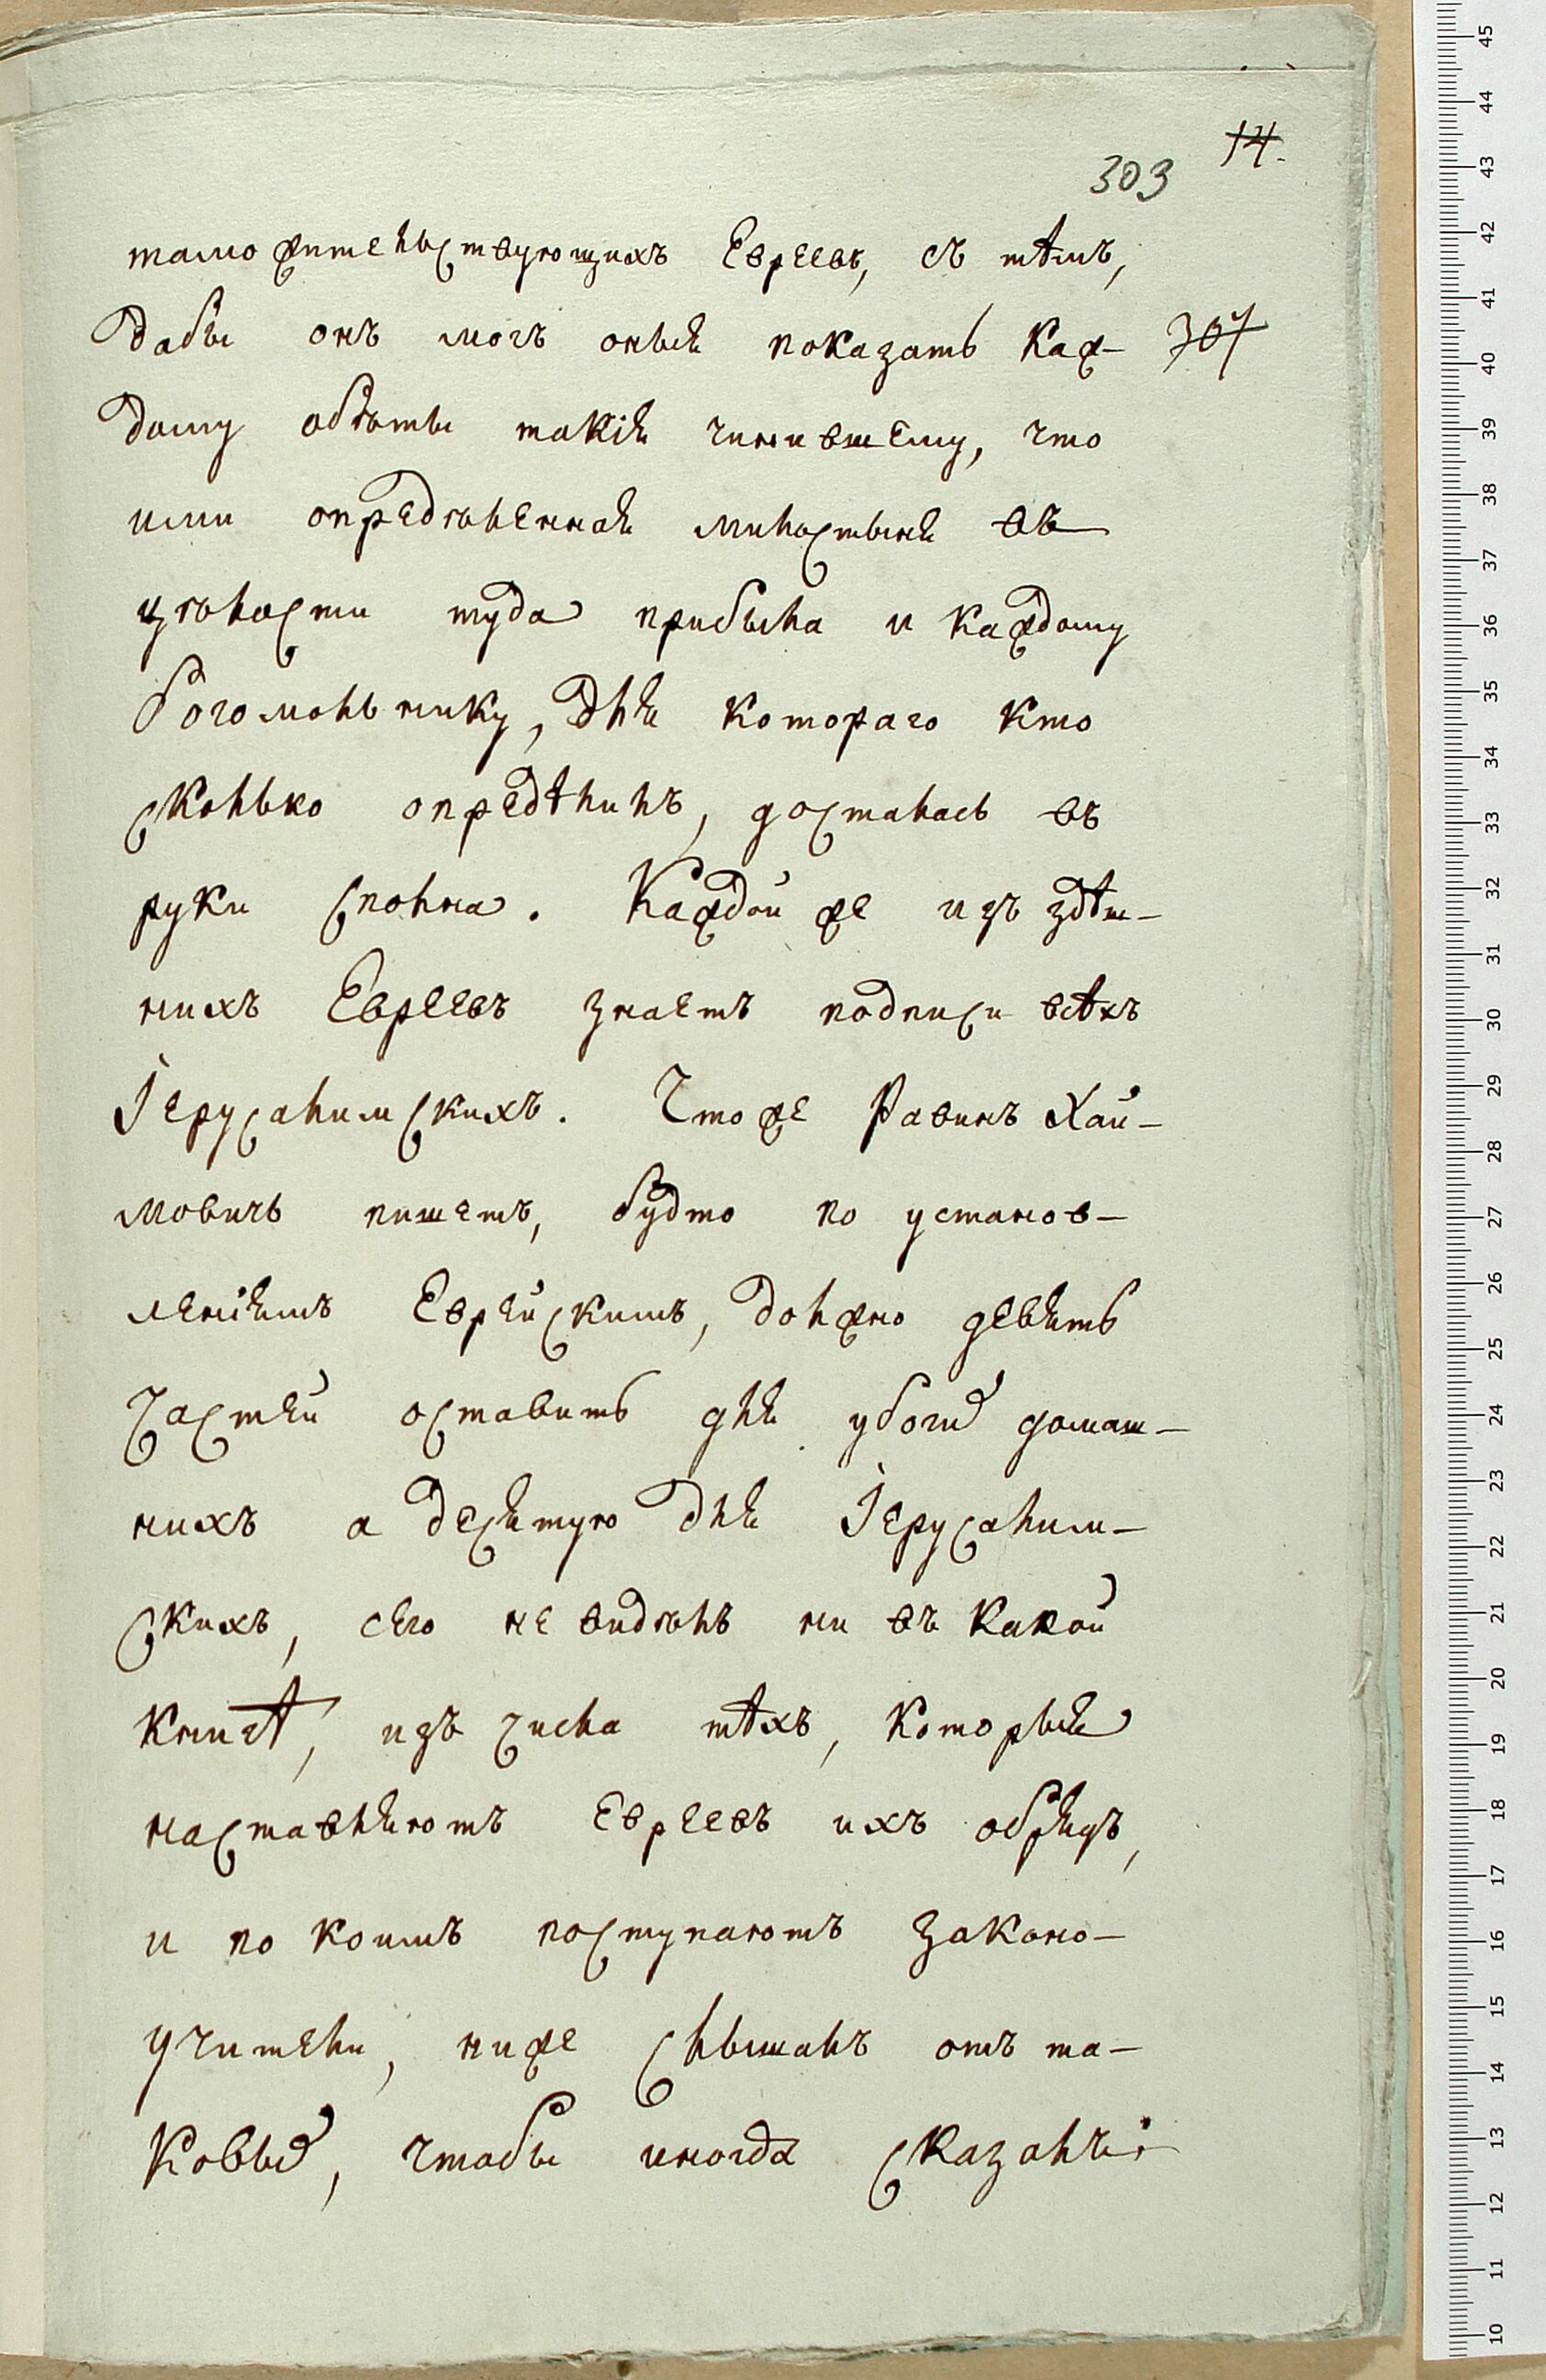 14.
303
тамо жительствующихъ Евреевъ, съ тѣмъ,
дабы онъ могъ оныя показать каж-
304
дому обѣты такія чинившему, что
ими опредѣленная милостыня въ
цѣлости туда прибыла и каждому
богомольнику, для котораго кто
сколько опредѣлилъ, досталась въ
руки сполна. Каждой же изъ здѣш-
нихъ Евреевъ знаетъ подписи всѣхъ
Іерусалимскихъ. Что же Равинъ Хай-
мовичь пишетъ, будто по установ-
леніямъ Еврейскимъ, должно девять
частей оставить для убогих домаш-
нихъ а десятую для Іерусалим-
скихъ, сего не видѣлъ ни въ какой
книгѣ, изъ числа тѣхъ, которыя
наставляютъ Евреевъ ихъ обрядъ,
и по коимъ поступаютъ законо-
учители, ниже слышалъ отъ та-
ковых, чтобы иногда сказалъ